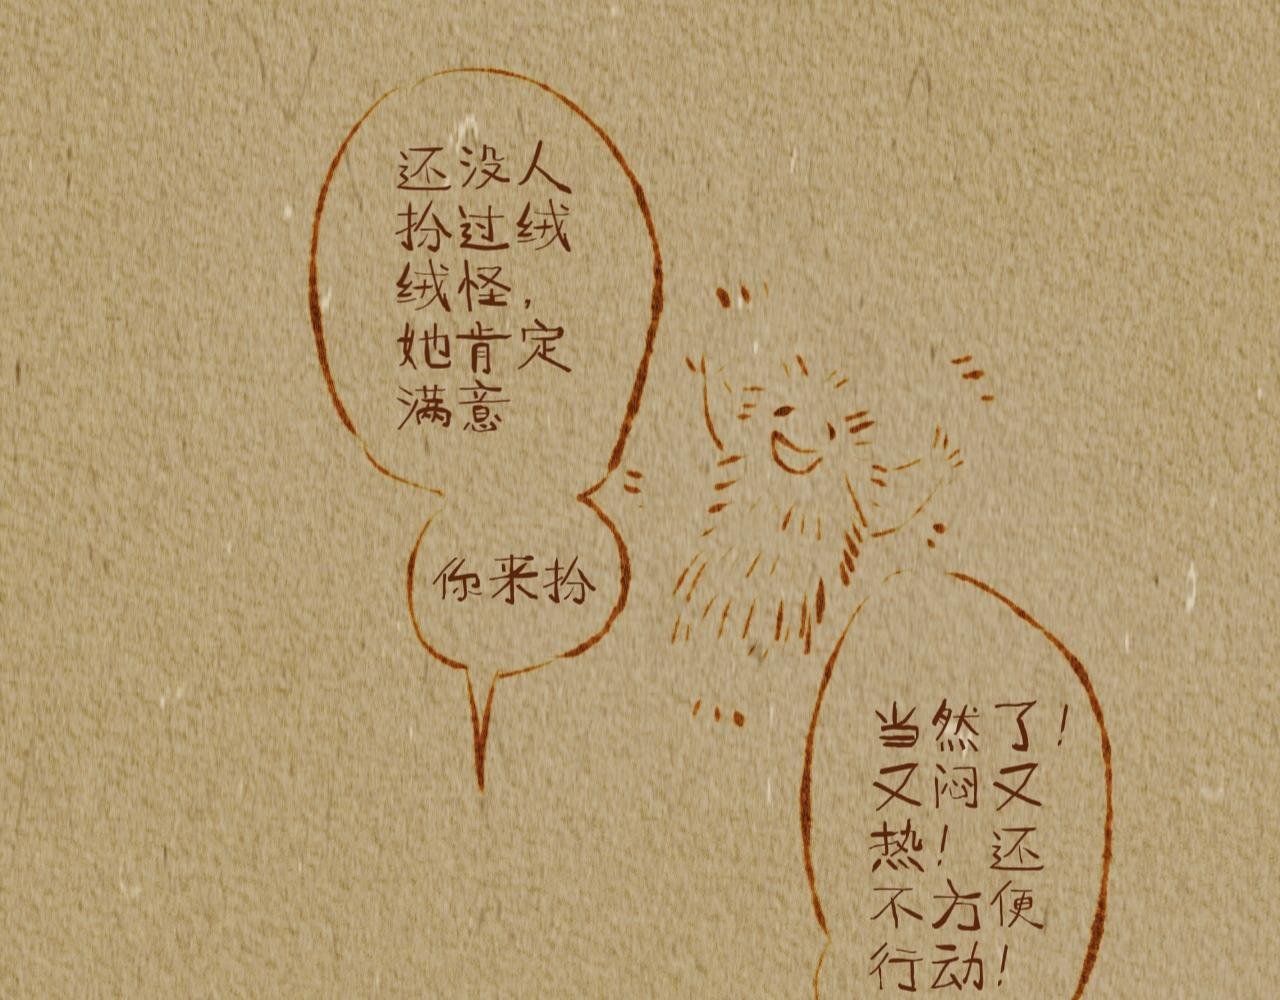 还没人
扮过绒
绒怪，
她肯定
满意
你来扮
当然了！
又闷又
热！还
不方便
行动！